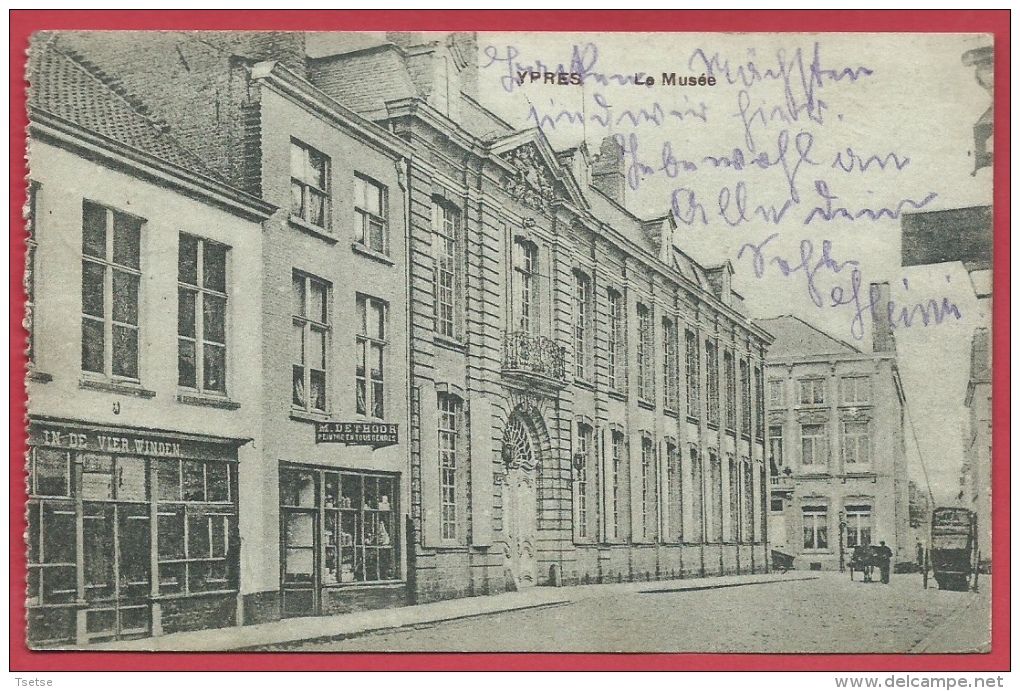 YPRES Le Musée
Mächsten
sind wir hier.
Lebewohl an
Alle dein
Sohn
Heini
IN DE VIER WINDEN
M. DETHOOR
PEINTRE EN TOUS GENRES
Tsetse
www.delcampe.net